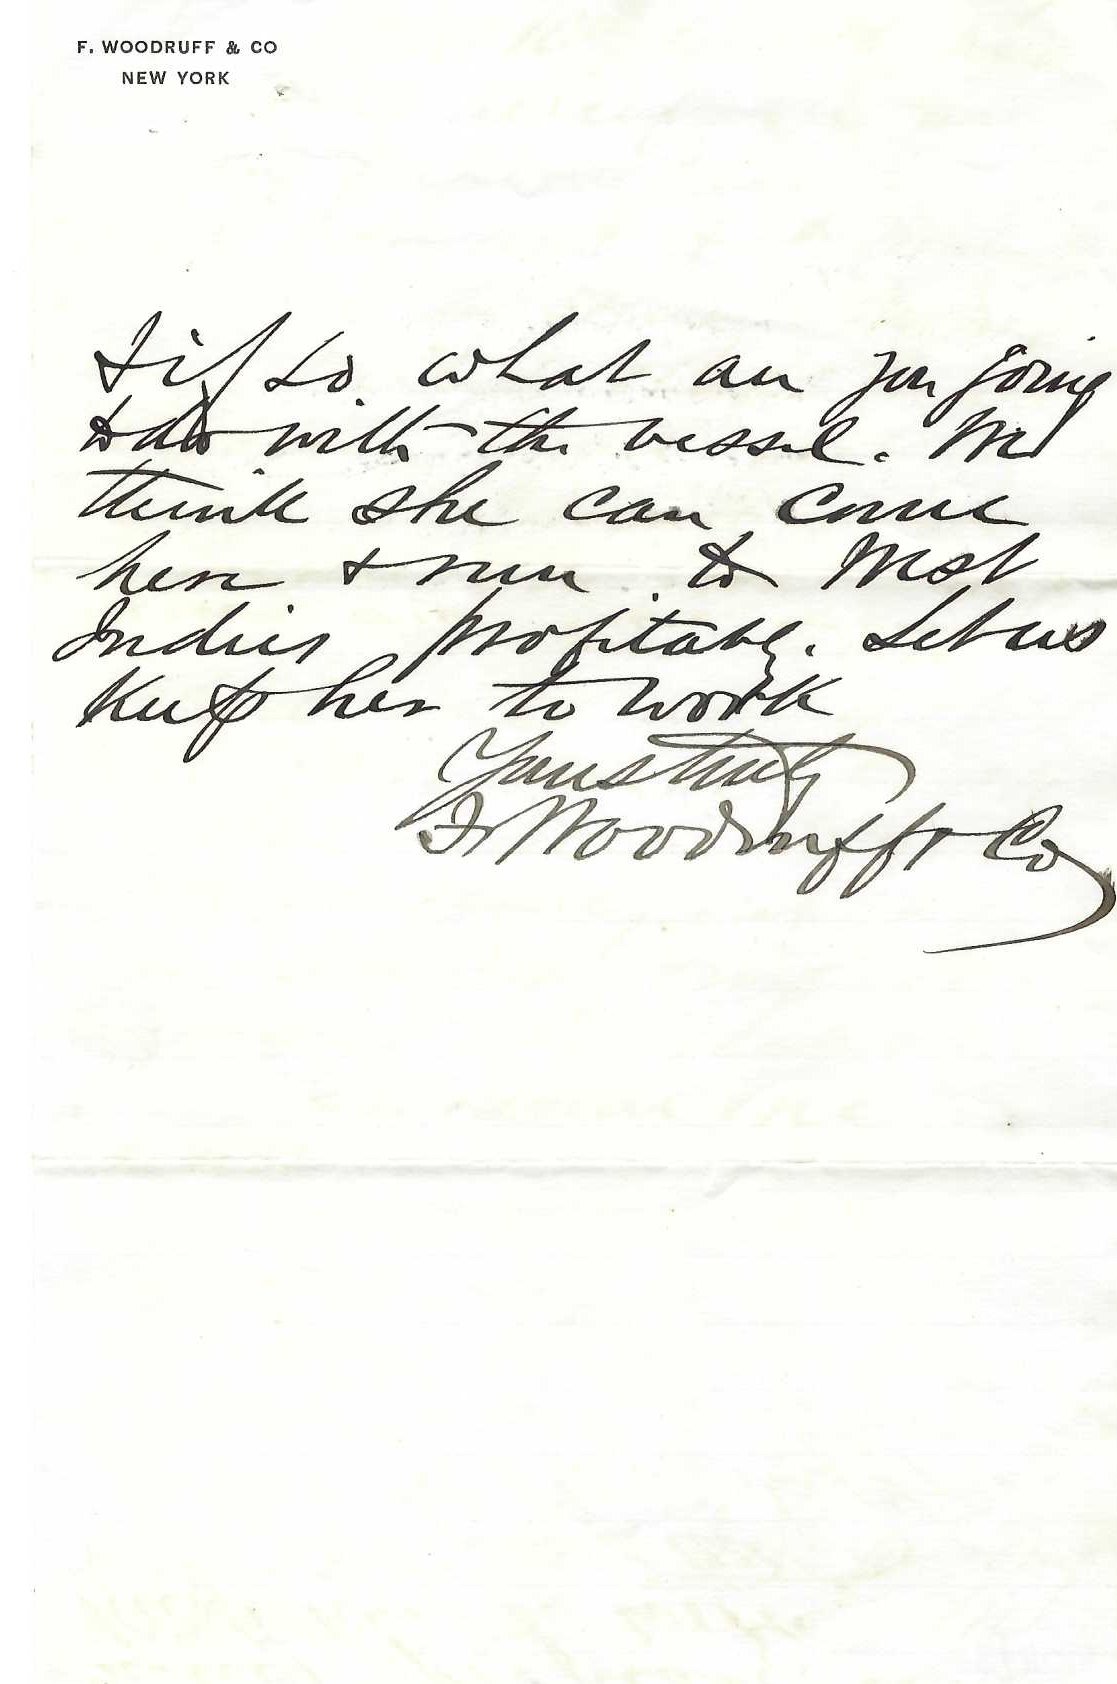 F. WOODRUFF & CO
NEW YORK
& if so what are you going
to do with the vessel. We
think she can come
here & run to West
Indies profitably. Let us
Keep her to work
Yours truly
F. Woodruff & Co